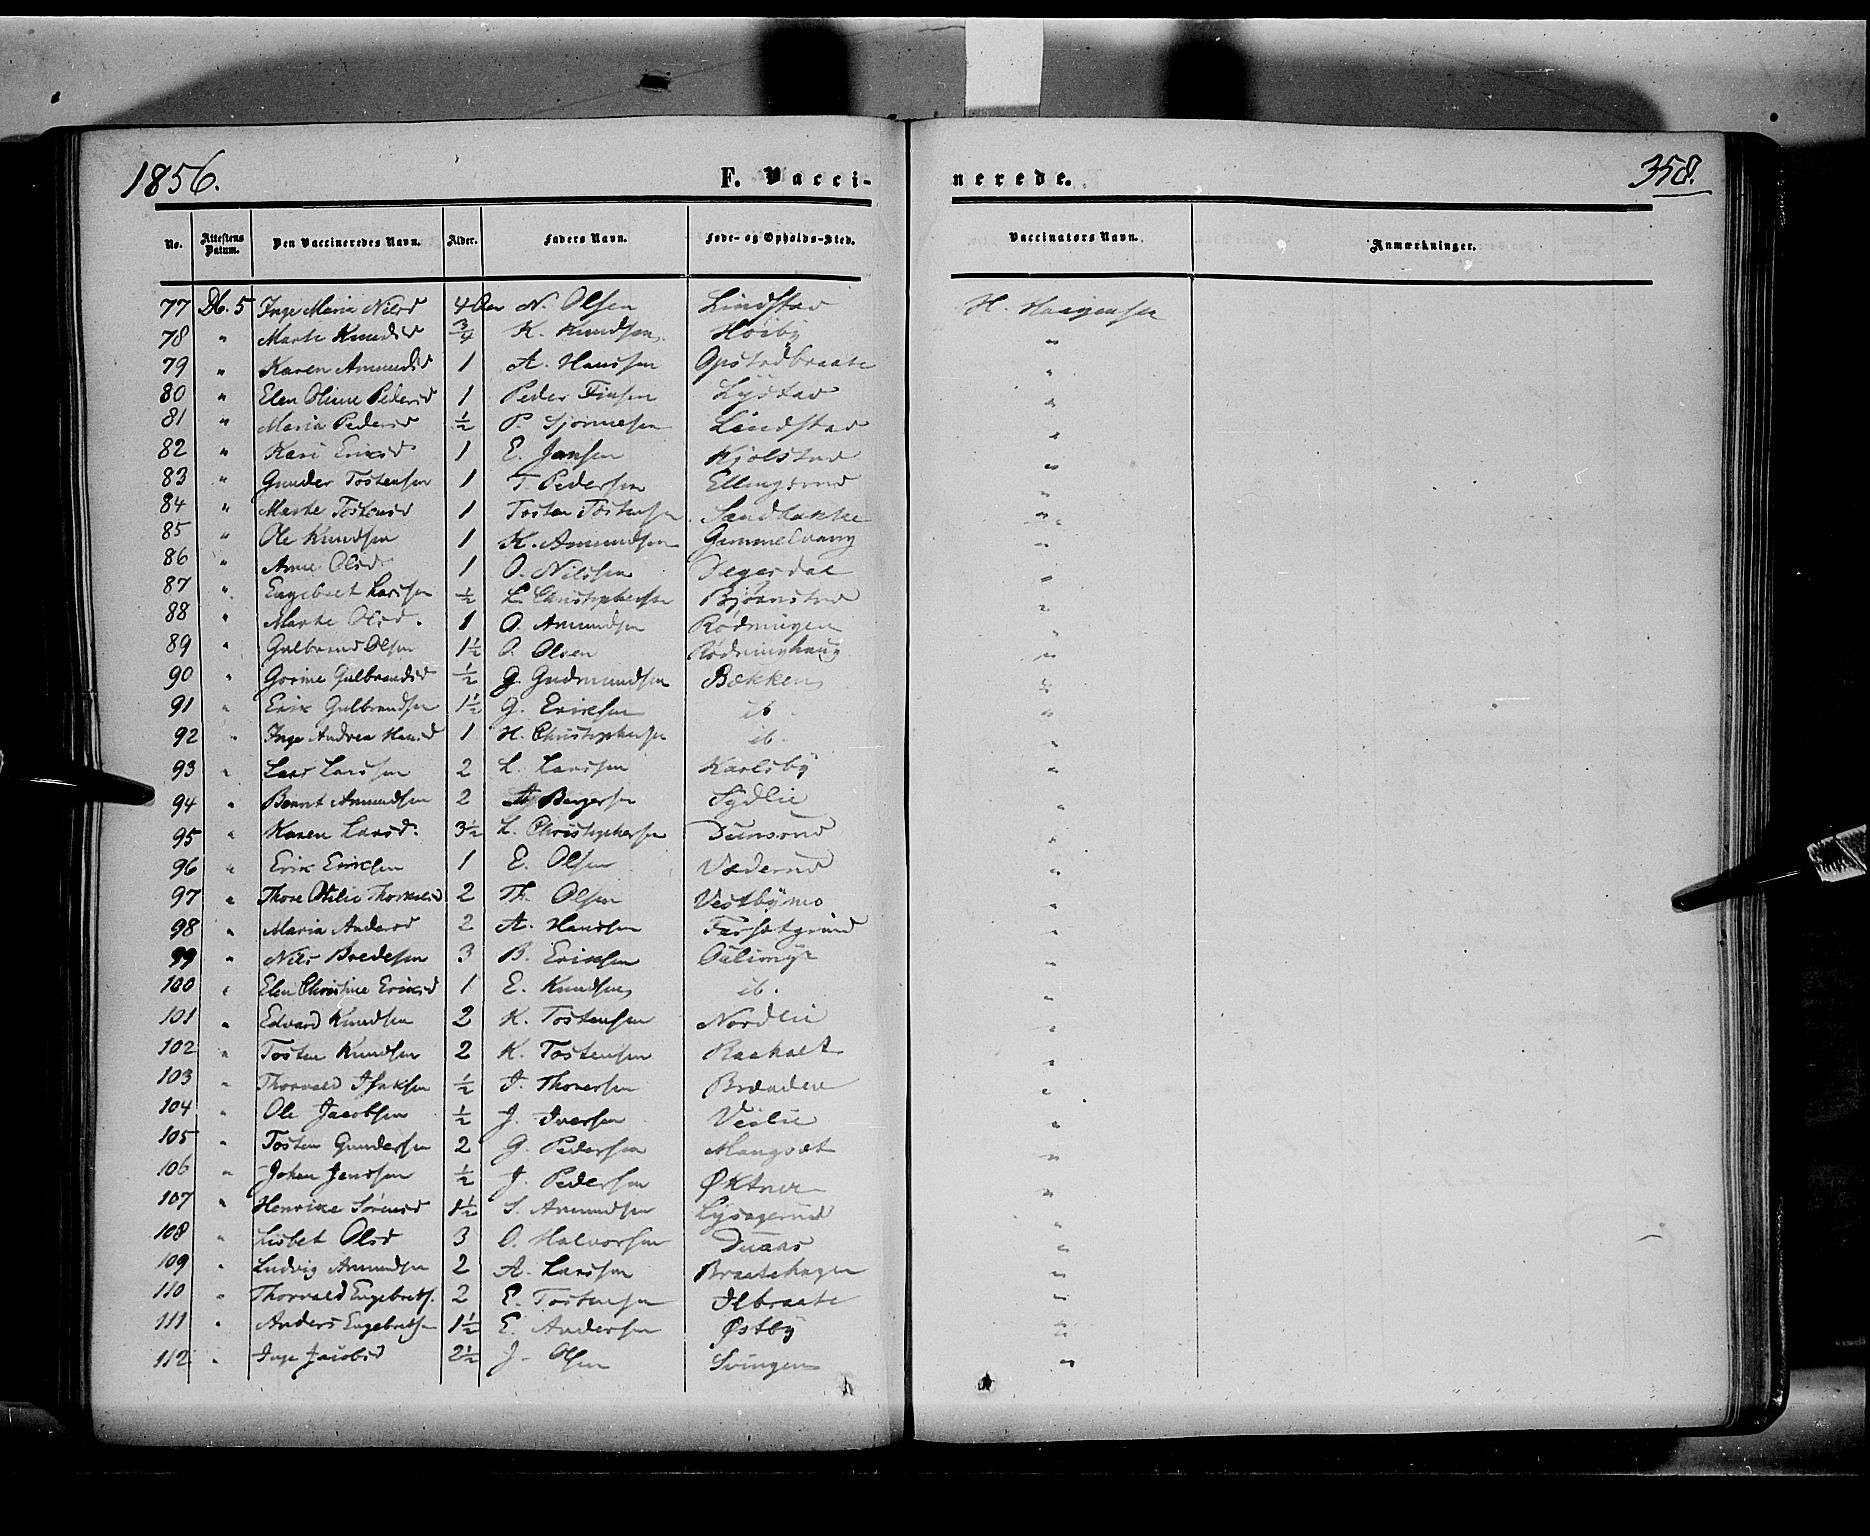 1856.
F. Vacci-
nerede.
358.
No. Attestens Datum. Den Vaccineredes Navn. Alder. Faders Navn. Føde- og Opholds-Sted. Vaccinators Navn. Anmærkninger.
77 Db. 5 Inge Maria Nilsd 4 N. Olsen Lindstad H. Haagensen
78 " Marte Knudsd 3/4 K. Knudsen Høiby "
79 " Karen Amundsd 1 A. Hanssen Opstadbraate "
80 " Elen Oliane Pedersd 1 Peder Finsen Lystad "
81 " Maria Pedersd 1/2 P. Lindstad "
82 " Kari Eriksd 1 E. Jansen Kjølstad "
83 " Gunder Tostensen 1 T. Pedersen Ellingsrud "
84 " Marte Tostensd 1 Tosten Tostensen Sandbakke "
85 " Ole Knudsen 1 K. Amundsen Gammelvang "
86 " Anne Olsd 1 O. Nilssen "
87 " Engebret Larssen 1/2 L. Christophersen Bjørnstad "
88 " Marte Olsd. 1 O. Amundsen Rødningen "
89 " Gulbrand Olsen 1 1/2 O. Olsen Rødninghaug "
90 " Gorine Gulbrandsd 1/2 G. Gudmundsen Bækken "
91 " Erik Gulbrandsen 1 1/2 G. Eriksen ib. "
92 " Inge Andrea Hansd 1 H. Christophersen ib. "
93 " Lars Larssen 2 L. Larssen Karlsby "
94 " Bernt Amundsen 2 A. Bergersen Sydlie "
95 " Karen Larsd. 3 1/2 L. Christophersen "
96 " Erik Eriksen 1 E. Olsen "
97 " Thore Otilie 2 Th. Olsen Vestbymo "
98 " Maria Andersd 2 A. Hanssen "
99 " Nils Bredesen 3 B. Eriksen "
100 " Elen Christine Eriksd 1 E. Knudsen ib. "
101 " Edvard Knudsen 2 K. Tostensen Nordlie "
102 " Tosten Knudsen 2 K. Tostensen Raaholt "
103 " Thorvald Isaksen 1/2 I. Thoresen Brænden "
104 " Ole Jacobsen 1/2 J. Iversen "
105 " Tosten Gundersen 2 G. Pedersen Mangset "
106 " Johan Jenssen 1/2 J. Pedersen Øktner "
107 " Henrike Sørensd 1 1/2 S. Amundsen Lysagerud "
108 " Lisbet Olsd 3 O. Halvorsen "
109 " Ludvig Amundsen 2 A. Larssen Braatehagen "
110 " Thorvald Engebrets. 2 E. Tostensen Ilbraate "
111 " Anders Engebretsen 1 1/2 E. Andersen Østby "
112 " Inge Jacobsd 2 1/2 J. Olsen Svingen "